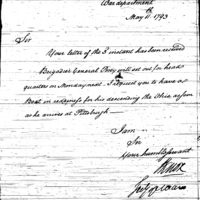 War department
May 11th 1793
Sir
Your letter of the 3 instant has been received
Brigadier General Posey will set out for head
quarters on Monday next. I request you to have a
Boat in readiness for his descending the Ohio as soon
as he arrives at Pittsburgh—
I am
Sir
Your humble servant
Knox
Secy of War